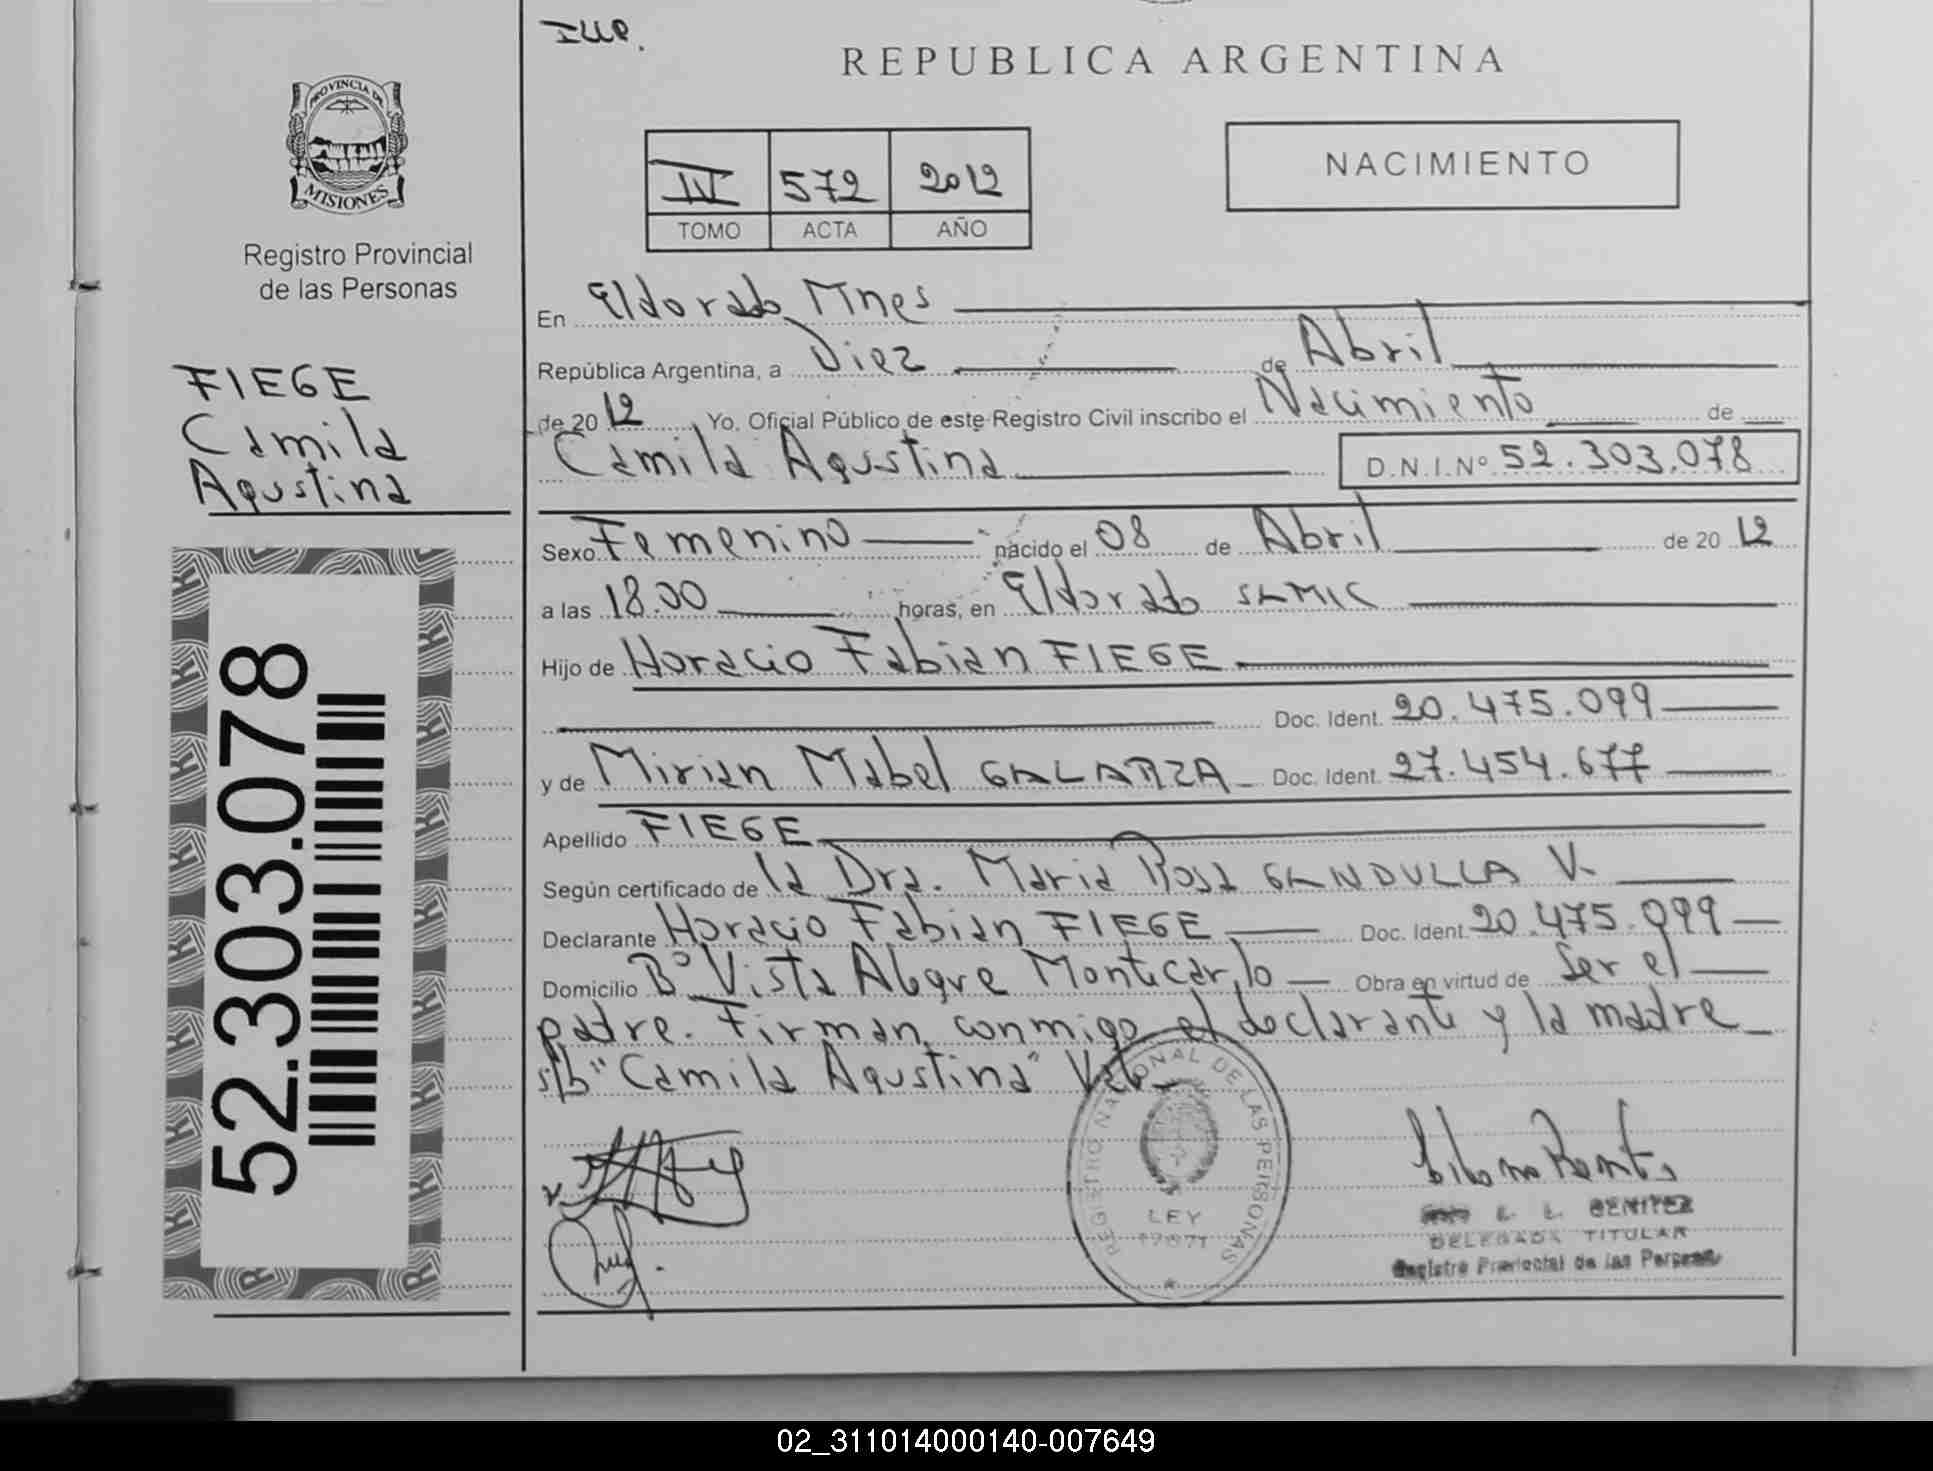 IUP.
REPUBLICA ARGENTINA
PROVINCIA DE
MISIONES
Registro Provincial
de las Personas
IV 572 2012
TOMO ACTA AÑO
NACIMIENTO
FIEGE
Camila
Agustina
52.303.078
En Eldorado Mnes
República Argentina, a Diez de Abril
de 2012 Yo, Oficial Público de este Registro Civil inscribo el Nacimiento de
Camila Agustina D.N.I.Nº 52.303.078
Sexo Femenino nacido el 08 de Abril de 20 12
a las 18.00 horas, en Eldorado SAMIC
Hijo de Horacio Fabian FIEGE
Doc. Ident. 20.475.099
y de Mirian Mabel GALARZA Doc. Ident. 27.454.677
Apellido FIEGE
Según certificado de la Dra. Maria Rosa GANDULLA V.
Declarante Horacio Fabian FIEGE Doc. Ident. 20.475.099
Domicilio Bº Vista Alegre Montecarlo Obra en virtud de Ser el
padre. Firman conmigo el declarante y la madre
s/b "Camila Agustina" Vale
REGISTRO NACIONAL DE LAS PERSONAS
LEY
17671
E. L. BENITEZ
DELEGADA TITULAR
Registro Provincial de las Personas
02_311014000140-007649